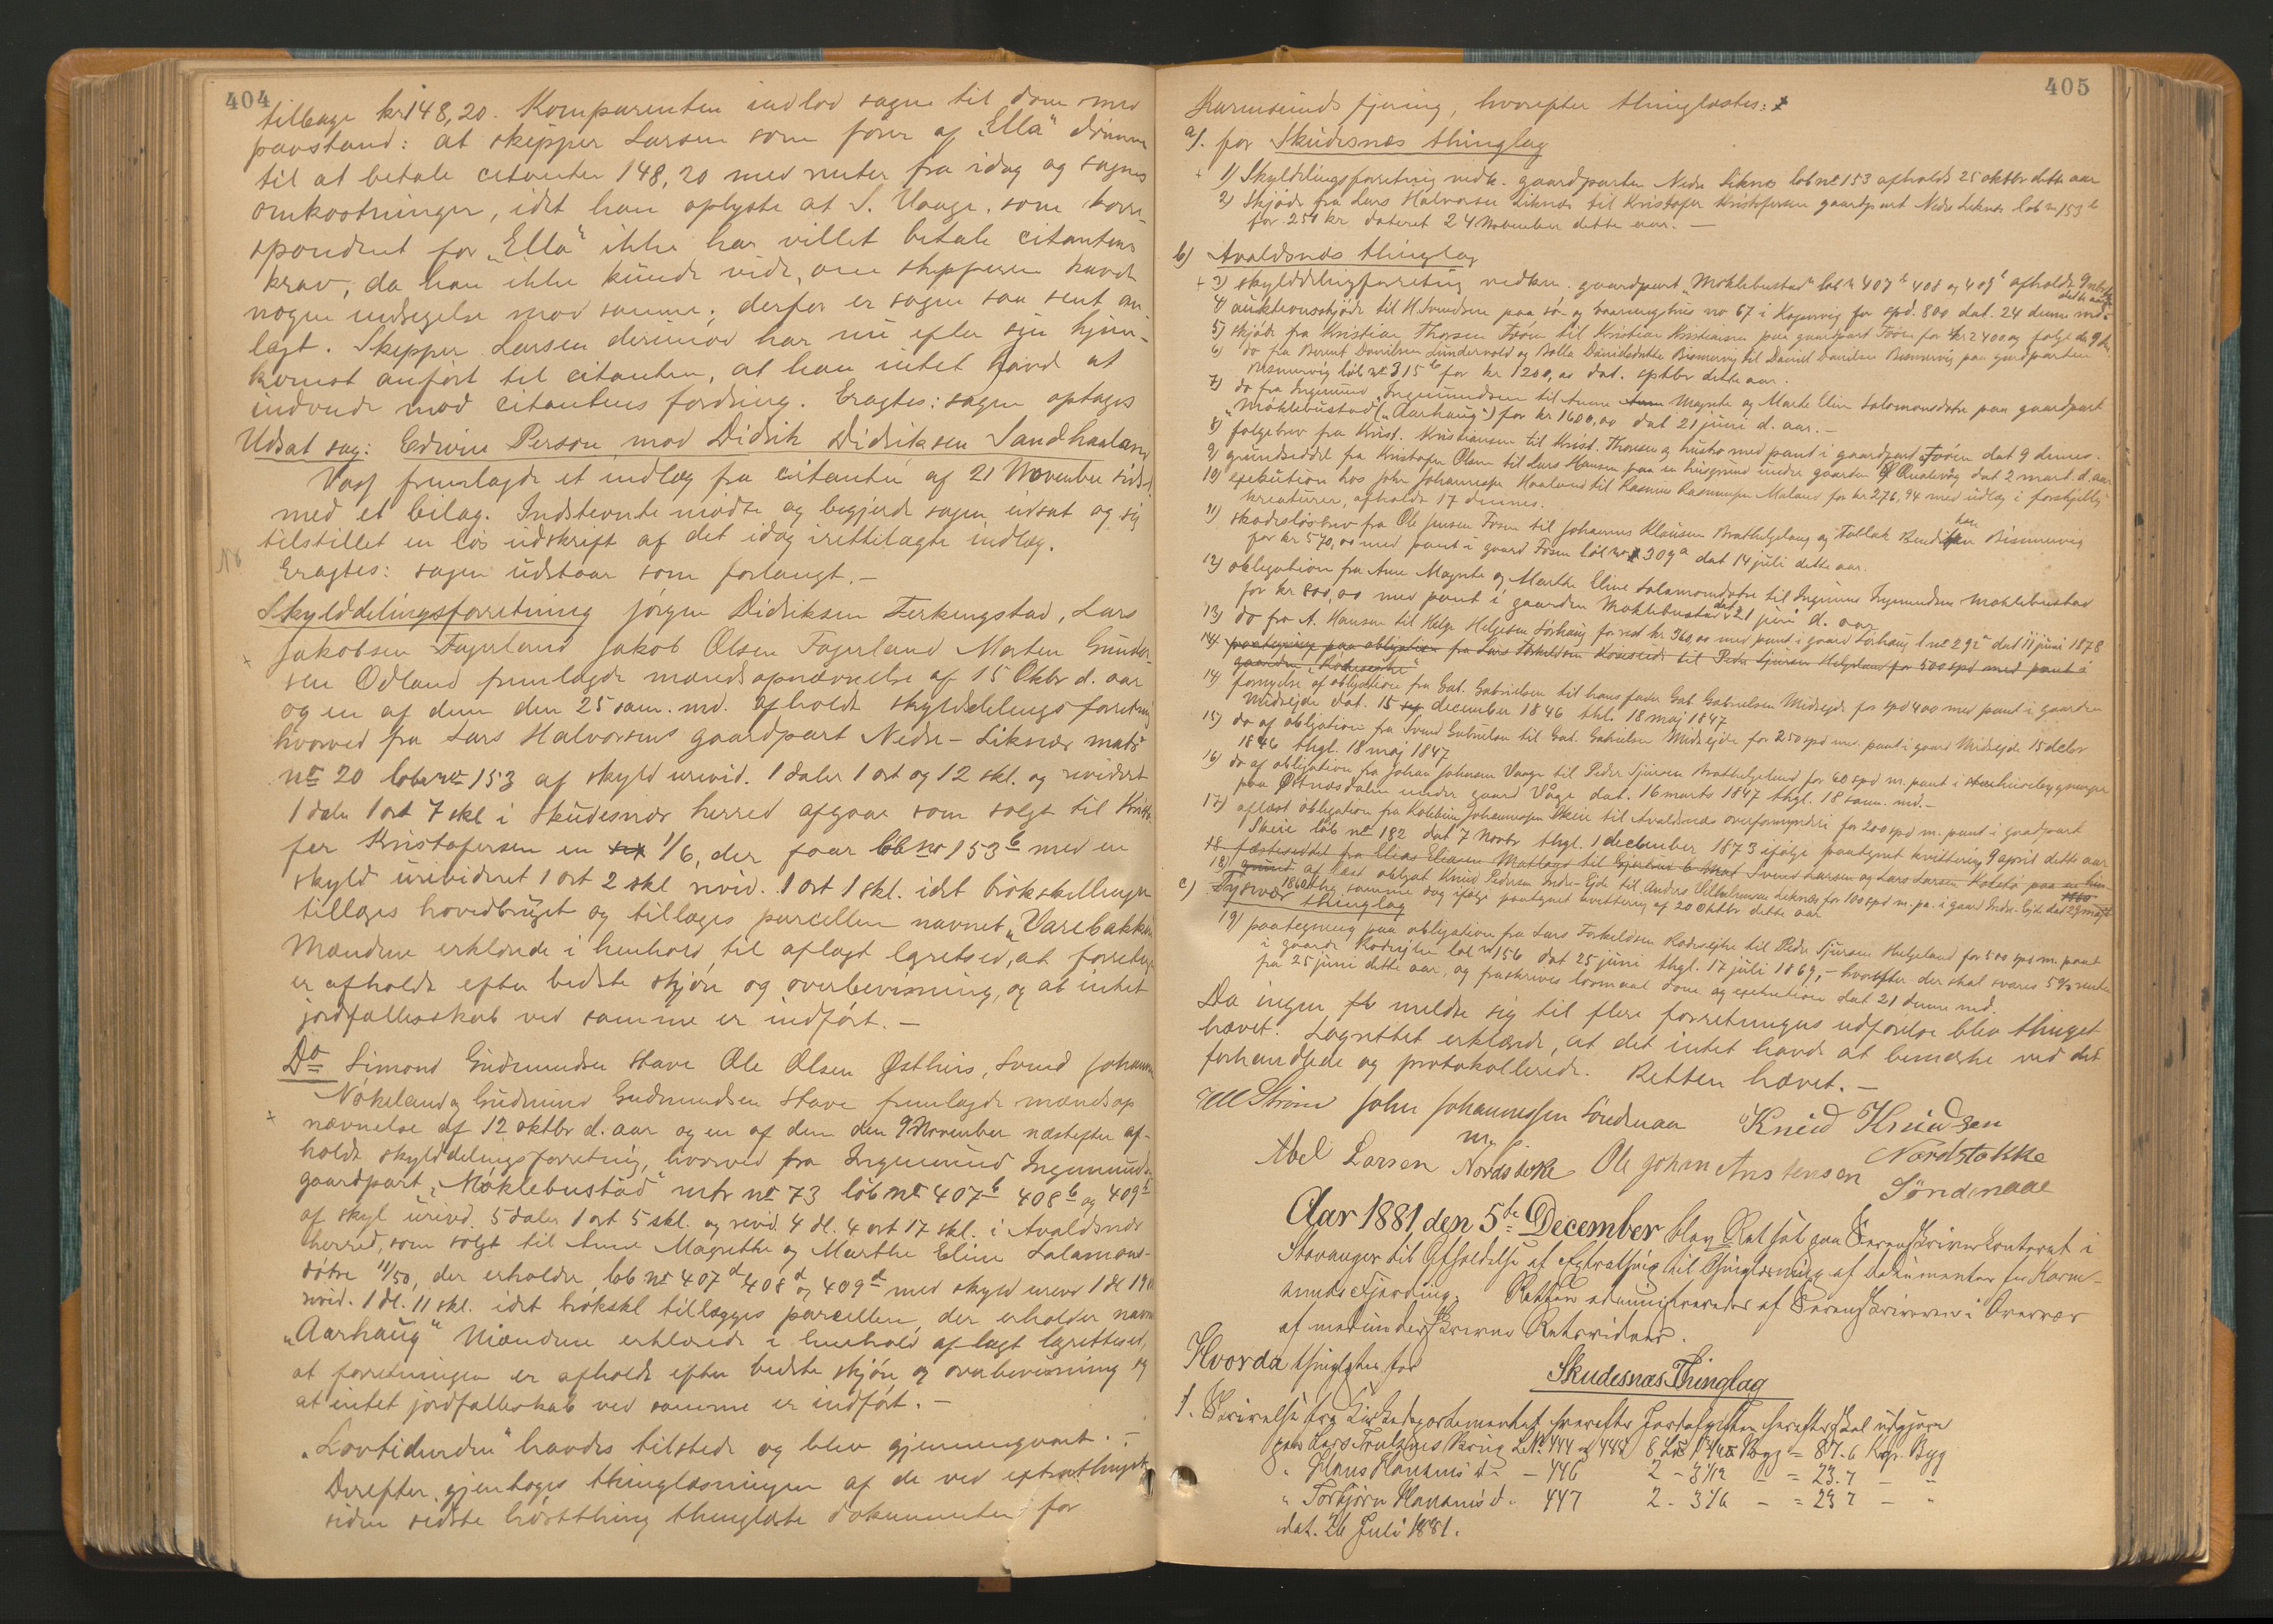 404
tilbage kr 148,20. Komparenten indlod sagen til dom med
paastand: at skipper Larsen som fører af "Ella" dømmes
til at betale citanten 148,20 med renter fra idag og sagens
omkostninger, idet han oplyste at S. Vaage, som korre-
spondent for "Ella" ikke har villet betale citantens
krav, da han ikke kunde vide, om skipperen havde
nogen indsigelse mod samme; derfor er sagen saa sent an
lagt. Skipper Larsen derimod har nu efter sin hjem-
komst anført til citanten, at han intet havde at
indvende mod citantens fordring. Eragtes: sagen optages
Udsat sag: Edwin Person mod Didrik Didriksen Sandhaaland
Vass fremlagde et indlæg fra citanten af 21 November sidstl.
med et bilag. Indstevnte mødte og begjerede sagen udsat og sig
tilstillet en løs udskrift af det idag irettelagte indlæg.
Eragtes: sagen udstaar som forlangt.-
Skylddelingsforretning Jørgen Didriksen Ferkingstad, Lars
Jakobsen Fagerland Jakob Olsen Fagerland Morten Gunder-
sen Odland fremlagde mandsopnævnelse af 15 Oktbr d. aar
og en af dem den 25 sam. md. afholdt skylddelingsforretning
hvorved fra Lars Halvorsens gaardpart Nedre-Liknes matr
no 20 løbeno 153 af skyld urevid. 1 daler 1 ort og 12 skl. og revideret
1 daler 1 ort 7 skl i Skudesnæs herred afgaar som solgt til Kristo-
fer Kristofersen en 1/6, der faar løb no 153 b med en
skyld urevideret 1 ort 2 skl revid. 1 ort 1 skl. idet brøkskillingen
tillægges hovedbruget og tillægges parcellen navnet "Varebakken
Mændene erklærede i henhold til aflagt lagretsed, at forretningen
er afholdt efter bedste skjøn og overbevisning, og at intet
jordfællesskab ved samme er indført.-
Do Simond Gudmundsen Stave Ole Olsen Østhus, Svend Johannes
Nøkeland og Gudmund Gudmundsen Stave fremlagde mandsop
nævnelse af 12 oktbr d. aar og en af dem den 9 November næstefter af-
holdt skylddelingsforretnig, hvorved fra Ingemund Ingemunds.
gaardpart "Møklebustad" mtr no 73 løb no 407 b 408 b og 409 b
af skyl urevd. 5 daler 1 ort 5 skl. og revid. 4 dl. 4 ort 17 skl. i Avaldsnes
herred, som solgt til Anne Magrethe og Marthe Eline Salamons-
døtre 11/50, der erholder løb no 407 d 408 d og 409 d med skyld urevd 1 dl 19
revid. 1 dl. 11 skl. idet brøkskl tillægges parcellen, der erholder navn
"Aarhaug" Mændene erklærede i henhold aflagt lagrettesed,
at forretningen er afholdt efter bedste skjøn og overbevisning og
at intet jordfællesskab ved samme er indført.-
"Lovtidenden" havdes tilstede og blev gjennemgaaet.-
Derefter gjentoges thinglæsningen af de ved extrathinget
siden sidste høstthing thinglæste dokumenter for
405
Karmsunds fjering, hvorefter thinglæstes:
a). for Skudesnæs thinglag
1) Skyldelingsforretnig vedk. gaardparten Nedre Liknes løb no 153 afholdt 25 oktbr dette aar
2) Skjøde fra Lars Halvorsen Liknes til Kristofer Kristofersen gaardpart Nedre Liknes løb no 153 b
for 250 kr dateret 24 November dette aar.-
b) Avaldsnes thinglag
3) skylddelingforretnig vedkm. gaardpart "Møklebustad" løb no 407 b 408 og 409 b afholdt 9 novbr
dette aar
4) auktionsskjøde til H. Svendsen paa sø- og vaaningshus no 67 i Kopervig for spd. 800 dat. 24 dennes md.
5) skjøde fra Kristian Thorsen Føsen til Kristian Kristiansen paa gaardpart Føsen for kr 2400 og følge dat 9 ds.
6) do fra Berent Danielsen Lundervold og Bolla Danielsdatter Bismervig til Daniel Danielsen Bismervig paa gardparten
Bismervig løb no 315 b for kr 1200,00 dat. sptbr dette aar.
7) do fra Ingemund Ingemundsen til Anne Magrete og Marte Eline Salomonsdøtre paa gaardpart
"Møklebustad ("Aarhaug") for kr 1600,00 dat 21 juni d. aar.-
8) følgebrev fra Krist. Kristiansen til Krist. Thorsen og hustro med pant i gaardpart Føsen dat 9 dennes.
9) grundseddel fra Kristofer Olsen til Lars Hansen paa en husgrund under gaarden Qualevåg dat 2 mart. d. aar
10) exekution hos John Johannessen Haaland til Rasmus Rasmussen Maland for kr 276,94 med udlæg i forskjellig
kreaturer, afholdt 17 dennes.
11) skadesløsbrev fra Ole Jensen Fosen til Johannes Klausen Brathelgeland og Tollak Bendiksen Bismervig
for kr 570,00 med pant i gaard Fosen løb no 309 a dat 14 juli dette aar.
12) obligation fra Ane Magrete og Marthe Eline Salamonsdøtre til Ingemund Ingemundsen Møklebustad
for kr 800,00 med pant i gaarden Møklebustad dat 21 juni d. aar
13) do fra A. Hansen til Helge Helgesen Sørhaug for rest kr 360,00 med pant i gaard Sørhaug l no 29 dat 11 juni 1878
14) paategning paa obligation fra Lars Torkildsen til Peder Sjursen Helgeland for 500 spd med pant i
gaarden "Rødseike"
14) fornyelse af obligation fra Gab. Gabrielsen til hans fader Gab. Gabrielsen Midseide for spd 400 med pant i gaarden
Midseide dat. 15 december 1846 thl. 18 maj 1847
15) do af obligation fra Svend Gabrielsen til Gab. Gabrielsen Midseide for 250 spd m. pant i gaard Midseide 15 decbr
1846 thgl. 18 maj 1847
16) do af obligation fra Johan Johnsen Vaage til Peder Sjursen Brathelgeland for 60 spd m. pant i husebygninger
paa Østnesdalen under gaard Våge dat. 16 marts 1847 thgl. 18 sam. md.-
17) aflæst obligation fra Kolbein Johannesen Skeie til Avaldsnæs overformynderi for 200 spd m. pant i gaardpart
Skeie løb no 182 dat 7 Novbr thgl. 1 december 1873 ifølge paategnet kvittering 9 april dette aar
18 fæsteseddel fra Elias Eliasen Matland til Svend Larsen og Lars Larsen Kolstø paa en hus-
18) grund aflæst obligat Knud Pedersen Indre-Eide til Anders Vilhelmsen Liknes for 100 spd m. pa. i gaard Indre-Eide dat 29 maj
1860 thg. samme dag ifølge paategnet kvittering af 20 Oktbr dette aar
c) Tysvær thinglag
19) paategning paa obligation fra Lars Torkildsen Rødseike til Peder Sjursen Helgeland for 500 spd m. pant
i gaard Rødseike løb no 156 dat 25 juni thgl. 17 juli 1869,- hvorefter der skal svares 5% rente
fra 25 juni dette aar, og fraskrives lovmaal dom og exekution dat 21 denne md.
Da ingen meldte sig til flere forretningers udførelse blev thinget
hævet. Lagrettet erklærede, at det intet havde at bemærke ved det
forhandlede og protokollerede. Retten hævet.-
Strøm John Johannessen Søndenaa Knud Knudsen
m. p. Nordstokke
Abel Larsen Nordstokke Ole Johan Anstensen
Søndenaae
Aar 1881, den 5te December blev Ret sat paa Sorenskriverkontoret i
Stavanger til Afholdelse af Extrathing til Thinglæsning af Dokumenter for Karm-
sunds Fjerding. Retten administreredes af Sorenskriveren i Overvær
af medunderskrevne Retsvidner.
Hvorda thinglæstes for
Skudesnæs Thinglag
1. Skrivelse fra Kirkedepartementet hvorefter Jordafgiften herefter skal udgjøre
paa Lars Trulsens Brug L. No 444 og 448 Byg = 87.6 Kgr. Byg
" Hans Hanssens do - 446 2 - 3 1/12 - = 23.7 - -
" Torbjørn Hanssens do 447 2 - 3 1/6 - = 23 7 - "
dat. 26 Juli 1881.